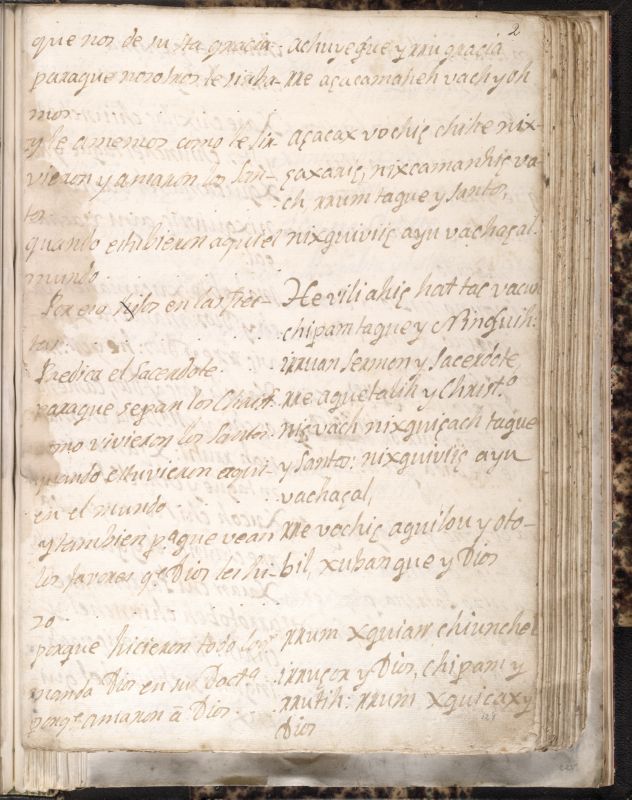 2
que nos de su sta gracia. achuyegue y mi gracia
paraque nosotros le sirba- me açacamaheh vach y oh
mos
y le amemos como le sir- açacax vochiç chihe nix-
vieron y amaron los San- çaxaniç, nixcamanhiç va
tos ch rrum tague y santos
quando estubieron aqui el nixguiviiç ayu vachaçal.
mundo.
Por eso hijos en las fies- He viliahiç hat taç
tas chipam tague y Ninguih:
Predica el Sacerdote. sermon y Sacerdote,
paraque sepan los Christ. me aguetalih y Christ.º
omo vivieron los Santos. niç vach nixguiçach tague
quando estuvieron aqui y santos: nixguiviiç ayu
en el mundo vachaçal,
y tambien pª que vean me vochiç aguilou y oto-
los favores q.e Dios les hi- bil, xuban gue y Dios
zo
porque hicieron todo lo q rrum xguian chiunchel
manda Dios en su Doctª y Dios, chipam y
porq.e amaron â Dios. rrutih: rrum xquicax y
Dios